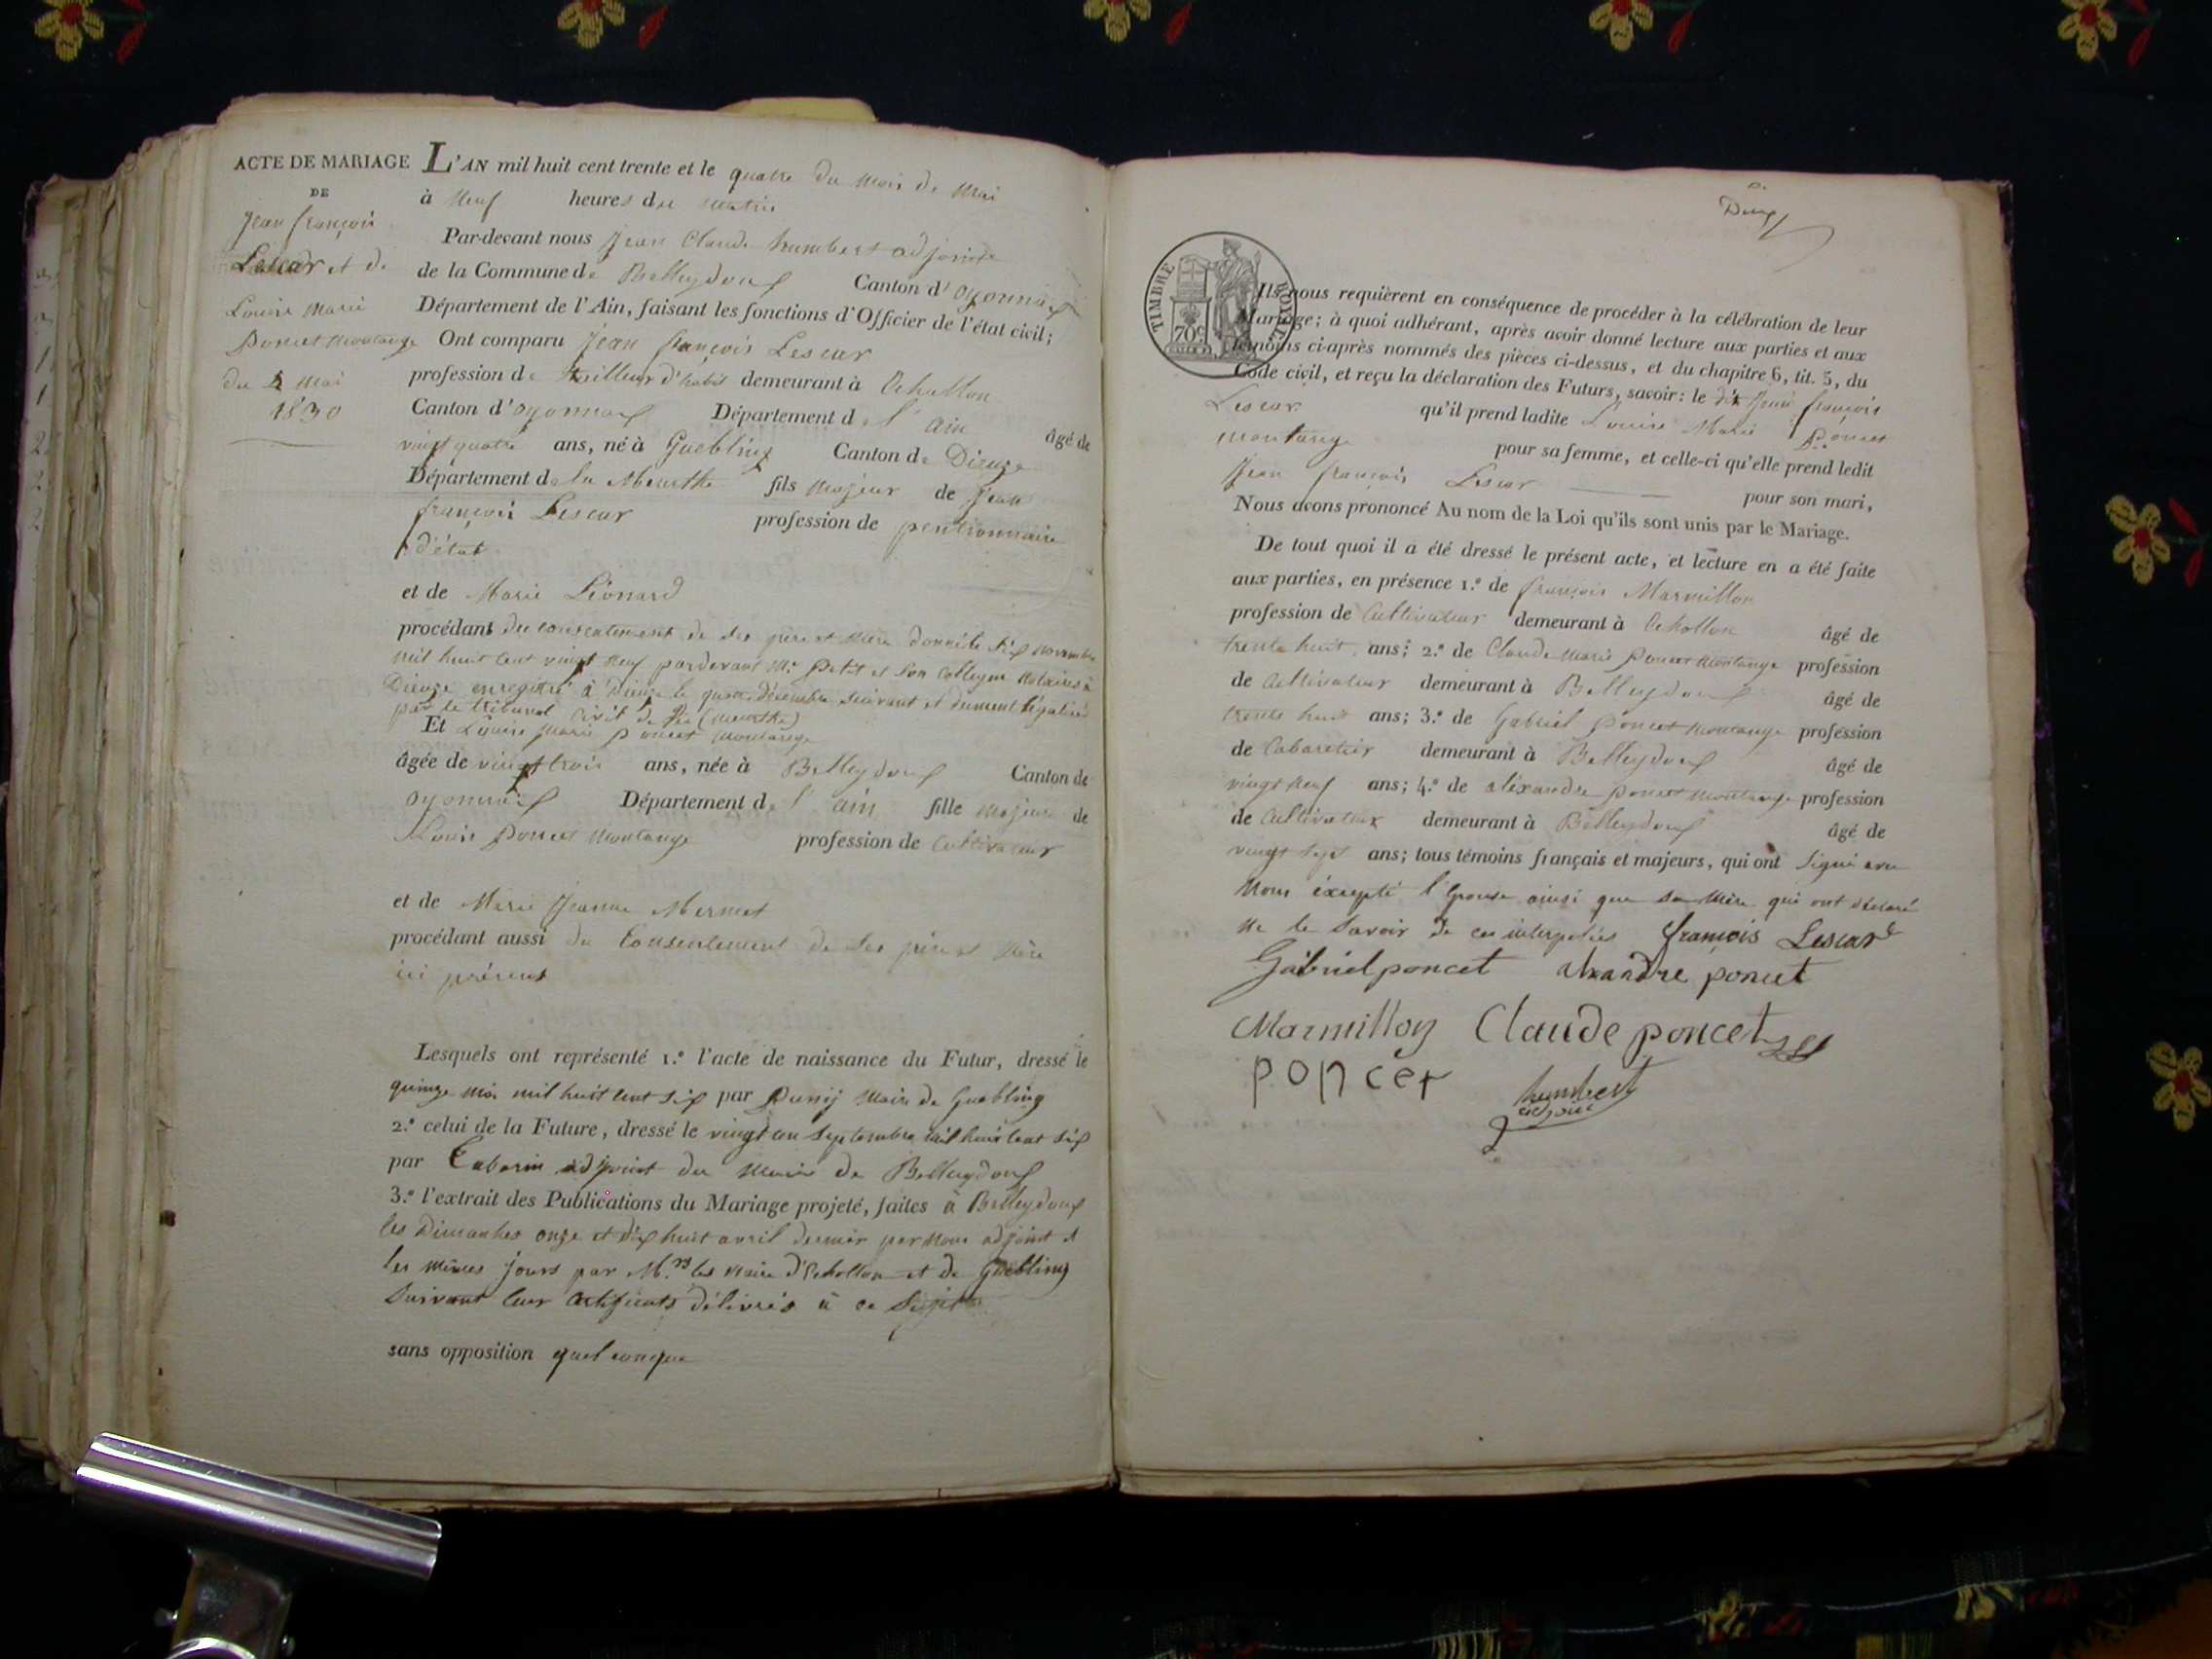 ACTE DE MARIAGE
DE
Jean françois
Lescar et de
Louise Marie
Poncet Montange
du 4 Mai
1830
L'AN mil huit cent trente et le quatre du mois de Mai
à Neuf heures du matin
Par-devant nous Jean Claude humbert adjoint
de la Commune de Belleydoux Canton d'oyonnax
Département de l'Ain, faisant les fonctions d'Officier de l'état civil;
Ont comparu Jean françois Lescar
profession de tailleur d'habit demeurant à Echallon
Canton d'oyonnax Département de l'ain âgé de
vingt quatre ans, né à Guebling Canton de Dieuze
Département de la Meurthe fils majeur de Jean
françois Lescar profession de pentionnaire
d'état
et de Marie Léonard
procédant du consentement de ses père et mère donné le dix novembre
mil huit cent vingt neuf pardevant Me Petit et son collegue Notaires à
Dieuze enregitré à Dieuze le quatre décembre suivant et dument légalisé
par le tribunal Civil de Vic (meurthe)
Et Louise Marie poncet Montange
âgée de vingt trois ans, née à Belleydoux Canton de
oyonnax Département de l'ain fille majeure de
Louis poncet Montange profession de Cultivateur
et de Marie Jeanne Mermet
procédant aussi du Consentement de ses père et Mère
ici présent
Lesquels ont représenté 1.º l'acte de naissance du Futur, dressé le
quinze mai mil huit cent six par Maire de Guebling
2.º celui de la Future, dressé le vingt un Septembre mil huit cent six
par adjoint du Maire de Belleydoux
3.º l'extrait des Publications du Mariage projeté, faites à Belleydoux
les Dimanches onze et dix huit avril dernier par Nous adjoint et
les mêmes jours par M.rs les Maire d'Echallon et de Guebling
Suivant leur certificats délivrés à ce Sujet
sans opposition quelconque
TIMBRE ROYAL
70c
Ils nous requièrent en conséquence de procéder à la célébration de leur
Mariage; à quoi adhérant, après avoir donné lecture aux parties et aux
témoins ci-après nommés des pièces ci-dessus, et du chapitre 6, tit. 5, du
Code civil, et reçu la déclaration des Futurs, savoir: le dit Jean françois
Lescar qu'il prend ladite Louise Marie Poncet
montange pour sa femme, et celle-ci qu'elle prend ledit
Jean françois Lescar pour son mari,
Nous avons prononcé Au nom de la Loi qu'ils sont unis par le Mariage.
De tout quoi il a été dressé le présent acte, et lecture en a été faite
aux parties, en présence 1.º de françois Marmillon
profession de Cultivateur demeurant à Echallon âgé de
trente huit ans; 2.º de Claude Marie Poncet Montange profession
de Cultivateur demeurant à Belleydoux âgé de
trente huit ans; 3.º de Gabriel Poncet Montange profession
de Cabaretier demeurant à Belleydoux âgé de
vingt neuf ans; 4.º de aléxandre poncet Montange profession
de Cultivateur demeurant à Belleydoux âgé de
vingt sept ans; tous témoins français et majeurs, qui ont Signé avec
Nous éxcepté l'épouse ainsi que sa Mère qui ont déclaré
ne le Savoir de ce interpelées françois Lescar
Gabriel poncet alxandre poncet
Marmillon Claude poncet
poncet
humbert
adjoint